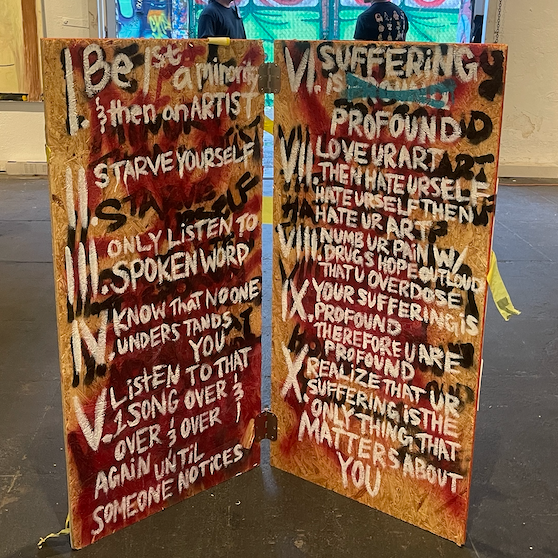 I. Be 1st a minority
& then an ARTIST
II. STARVE YOURSELF
III. ONLY LISTEN TO
SPOKEN WORD
IV. KNOW THAT NO ONE
UNDERSTANDS
YOU
V. LISTEN TO THAT
1 SONG OVER &
OVER & OVER &
AGAIN UNTIL
SOMEONE NOTICES
VI. SUFFERING
IS
PROFOUND
VII. LOVE UR ART
THEN HATE URSELF
HATE URSELF THEN
HATE UR ART
VIII. NUMB UR PAIN W/
DRUGS HOPE OUTLOUD
THAT U OVERDOSE
IX. YOUR SUFFERING IS
PROFOUND
THEREFORE U ARE
PROFOUND
X. REALIZE THAT UR
SUFFERING IS THE
ONLY THING THAT
MATTERS ABOUT
YOU